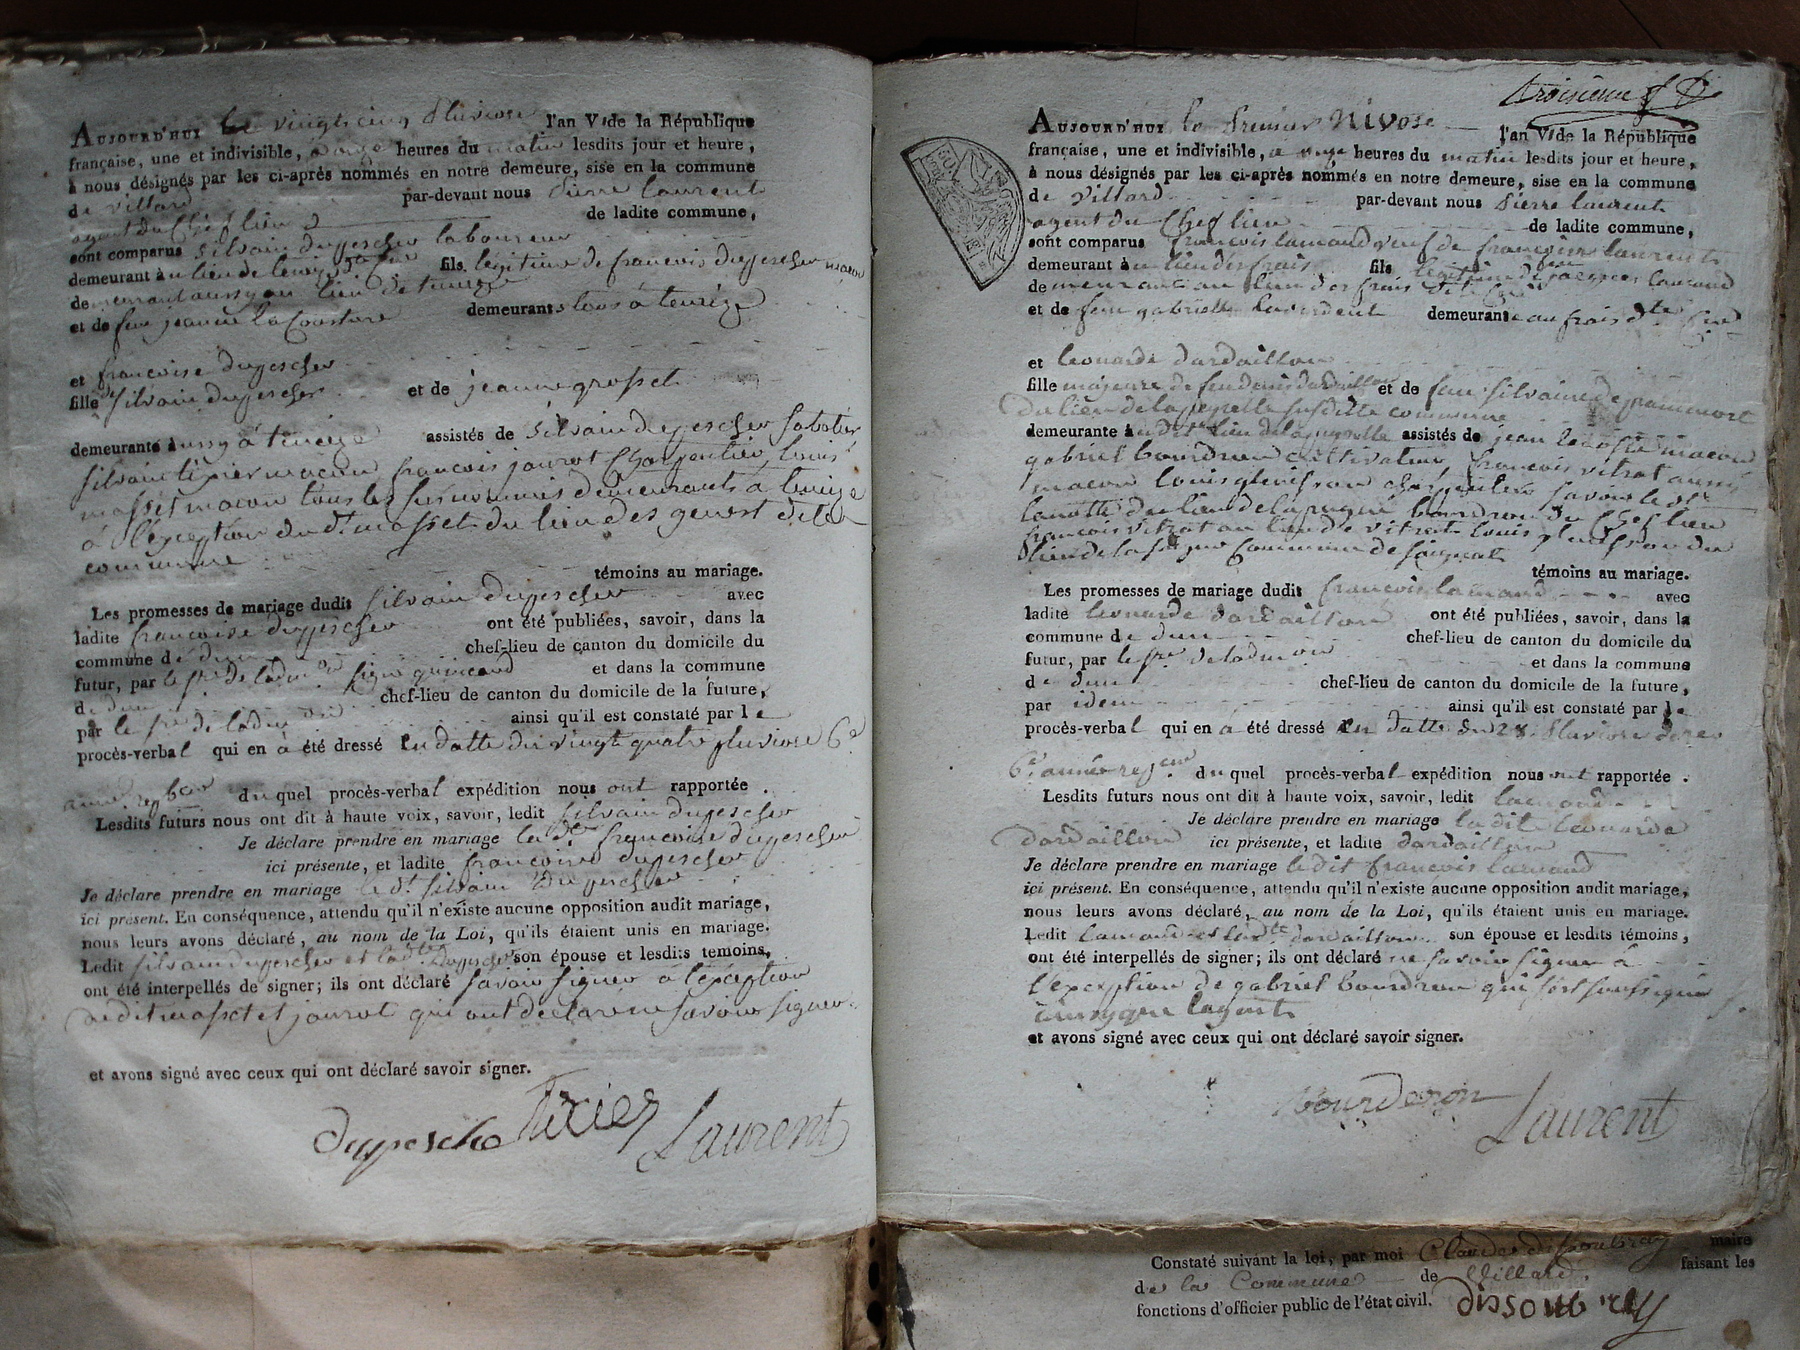 AUJOURD'HUI le vingt cinq pluviose l'an VI de la République
française, une et indivisible, a onze heures du matin lesdits jour et heure,
à nous désignés par les ci-après nommés en notre demeure, sise en la commune
de villard par-devant nous pierre laurent
agent du Chef lieu de ladite commune,
sont comparus silvain dupescher laboureur
demeurant au lieu de fils legitime de francois dupescher macon
demeurant aussy au lieu de
et de feu jeanne la Cousture demeurants tous à
et francoise dupescher
fille de silvain dupescher et de jeanne grosset
demeurante aussy à assistés de silvain dupescher sabotier
silvain tixier macon francois jouvot Charpentier, louis
masset macon tous les surnommés demeurants à
à l'exception du dt masset du lieu des genest dite
commune
témoins au mariage.
Les promesses de mariage dudit silvain dupescher avec
ladite francoise dupescher ont été publiées, savoir, dans la
commune de dun chef-lieu de canton du domicile du
futur, par le de signé et dans la commune
de dun chef-lieu de canton du domicile de la future,
par le de ainsi qu'il est constaté par le
procès-verbal qui en a été dressé en datte du vingt quatre pluviose 6e
année duquel procès-verbal expédition nous ont rapportée.
Lesdits futurs nous ont dit à haute voix, savoir, ledit silvain dupescher
Je déclare prendre en mariage la dte francoise dupescher
ici présente, et ladite francoise dupescher
Je déclare prendre en mariage le dt silvain dupescher
ici présent. En conséquence, attendu qu'il n'existe aucune opposition audit mariage,
nous leurs avons déclaré, au nom de la Loi, qu'ils étaient unis en mariage.
Ledit silvain dupescher et ladte dupescher son épouse et lesdits temoins,
ont été interpellés de signer; ils ont déclaré savoir signer à l'exception
dudit masset et jouvot qui ont déclaré ne savoir signer
et avons signé avec ceux qui ont déclaré savoir signer.
dupesche tixier Laurent
troisieme
AUJOURD'HUI le premier Nivose l'an VI de la République
française, une et indivisible, a onze heures du matin lesdits jour et heure,
à nous désignés par les ci-après nommés en notre demeure, sise en la commune
de villard par-devant nous pierre laurent
agent du Chef lieu de ladite commune,
sont comparus francois lamaud veuf de francoise laurent
demeurant au lieu des frais fils legitime de feu jacques lamaud
demeurant au lieu des frais
et de feu gabrielle demeurante au frais
et leonarde dardaillon
fille majeure de feu dardaillon et de feu silvaine de
du lieu de susditte commune
demeurante audit lieu de assistés de jean macon
gabriel bourdron cultivateur, francois vitrat aussi
macon louis charpentier savoir le dt
du lieu de bourdron du Chef lieu
francois vitrat au lieu de vitrat louis du
lieu de commune de
témoins au mariage.
Les promesses de mariage dudit francois lamaud avec
ladite leonarde dardaillon ont été publiées, savoir, dans la
commune de dun chef-lieu de canton du domicile du
futur, par le de et dans la commune
de dun chef-lieu de canton du domicile de la future,
par idem ainsi qu'il est constaté par le
procès-verbal qui en a été dressé en datte du 28 pluviose
6e année duquel procès-verbal expédition nous ont rapportée.
Lesdits futurs nous ont dit à haute voix, savoir, ledit lamaud
Je déclare prendre en mariage ladite leonarde
dardaillon ici présente, et ladite dardaillon
Je déclare prendre en mariage ledit francois lamaud
ici présent. En conséquence, attendu qu'il n'existe aucune opposition audit mariage,
nous leurs avons déclaré, au nom de la Loi, qu'ils étaient unis en mariage.
Ledit lamaud et ladte dardaillon son épouse et lesdits témoins,
ont été interpellés de signer; ils ont déclaré ne savoir signer a
l'exception de gabriel bourdron qui sest soussigné
et avons signé avec ceux qui ont déclaré savoir signer.
bourderon Laurent
Constaté suivant la loi, par moi maire
de la Commune de Villard faisant les
fonctions d'officier public de l'état civil. dissoubray